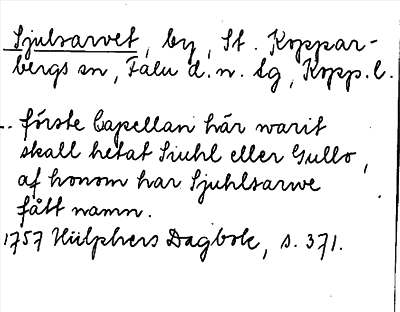 Sjulsarvet, by, St. Koppar-
bergs sn, Falu d. n. lg, Kopp. l.
.. förste Capellan här warit
skall hetat Siuhl eller Gullo,
af honom har Sjuhlsarwe
fått namn.
1757 Hülphers Dagbok, s. 371.